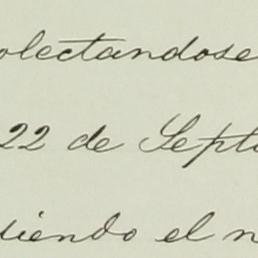 olectandose
22 de Septi
diendo el n